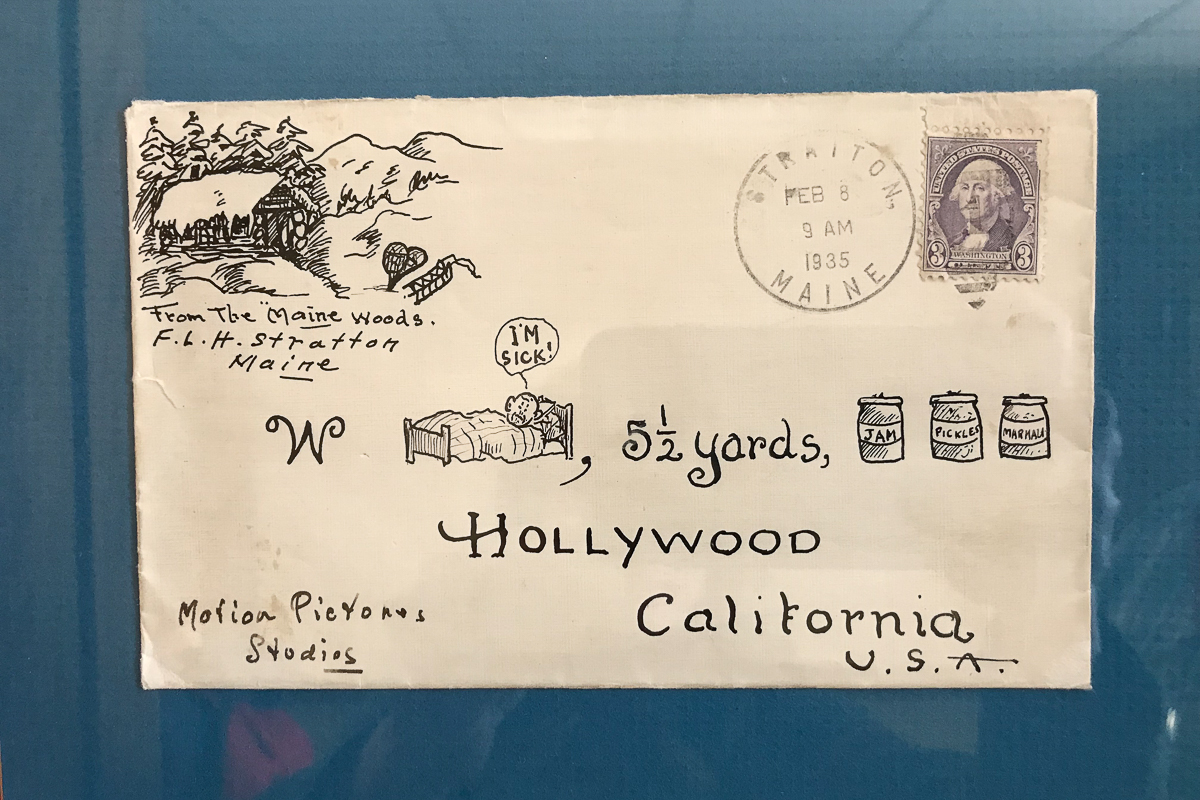 From The "Maine Woods.
F.L.H. Stratton
Maine
STRATTON,
FEB 8
9 AM
1935
MAINE
UNITED STATES POSTAGE
3 WASHINGTON 3
I'M
SICK!
W , 5½ yards,
JAM PICKLES MARMALA
HOLLYWOOD
California
U.S.A.
Motion Pictures
Studios